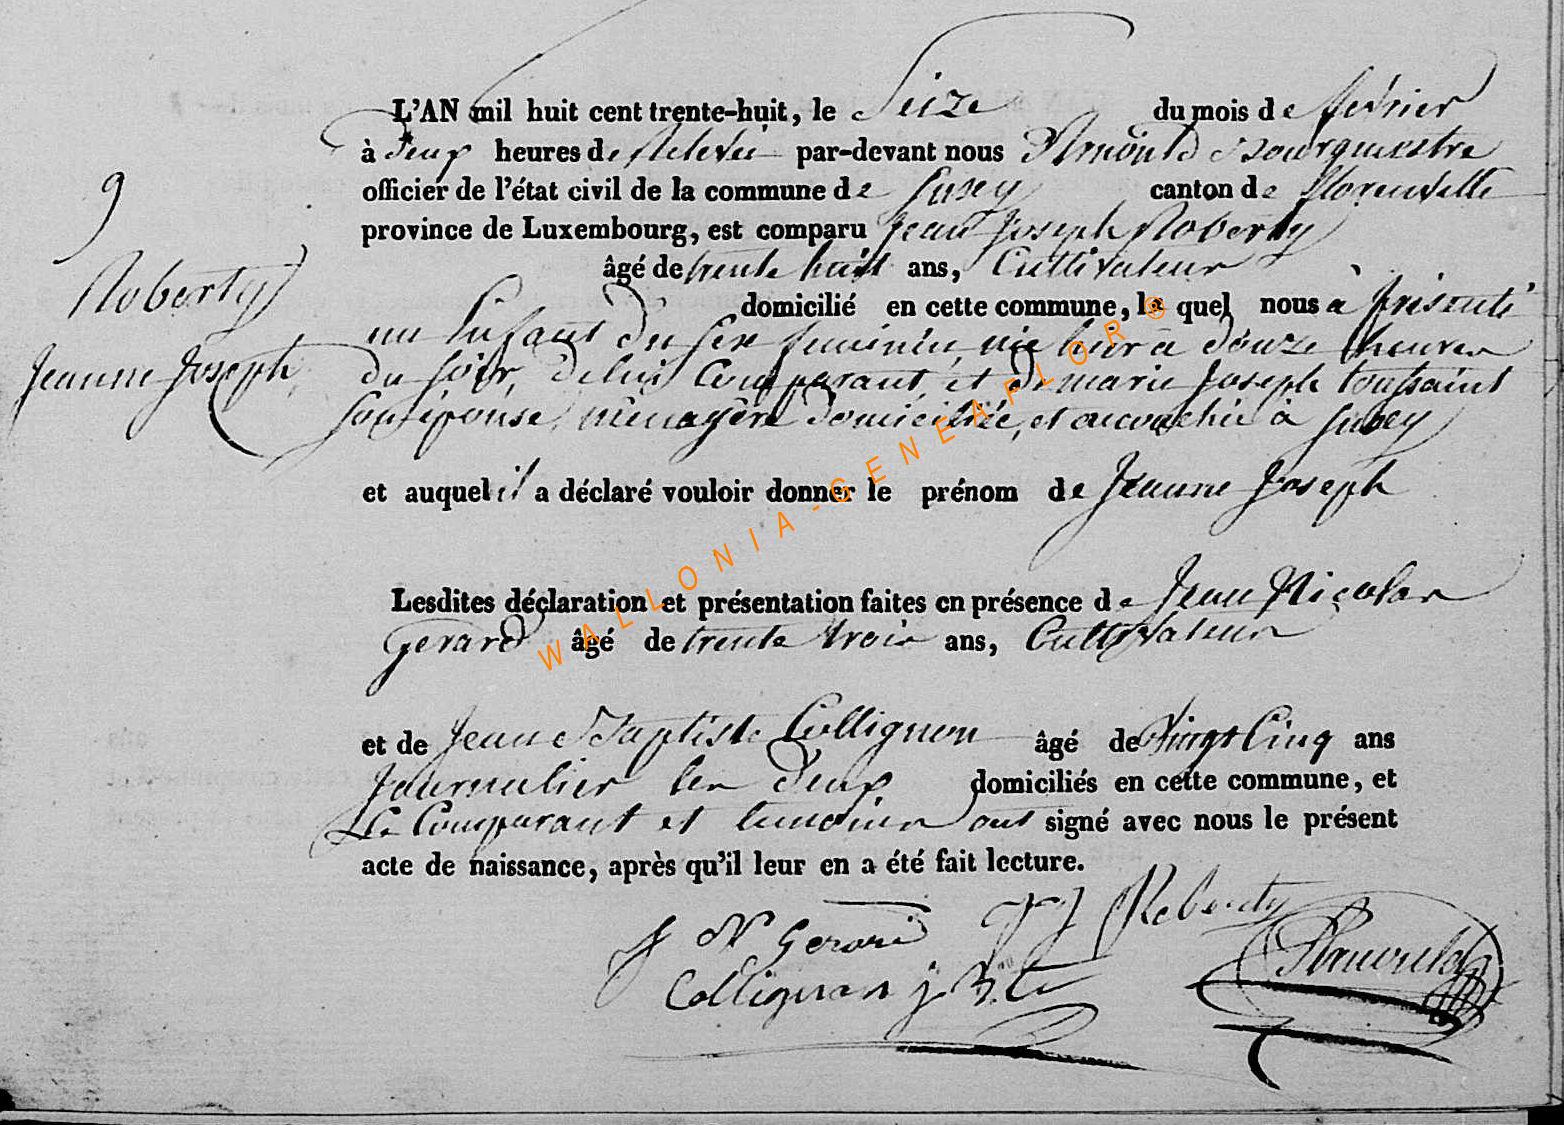 L'AN mil huit cent trente-huit, le Seize du mois de février
à deux heures de Relevée par-devant nous Arnould Bourgmestre
officier de l'état civil de la commune de canton de florenville
province de Luxembourg, est comparu Jean Joseph Roberty
âgé de trente huit ans, Cultivateur
domicilié en cette commune, le quel nous à présenté
un Enfant du Sexe feminin, née hier à douze heures
du soir, de lui Comparant, et de marie Joseph toussaint
son épouse, ménagère domiciliée, et accouchée à
et auquel il a déclaré vouloir donner le prénom de Jeanne Joseph
Lesdites déclaration et présentation faites en présence de Jean Nicolas
Gerard âgé de trente trois ans, Cultivateur
et de Jean Baptiste Collignon âgé de Vingt Cinq ans
Journalier les deux domiciliés en cette commune, et
Le Comparant et temoins ont signé avec nous le présent
acte de naissance, après qu'il leur en a été fait lecture.
9
Roberty
Jeanne Joseph
J N Gerard J J Roberty
Collignon j B.te Arnould
WALLONIA-GENEAFLOR ®